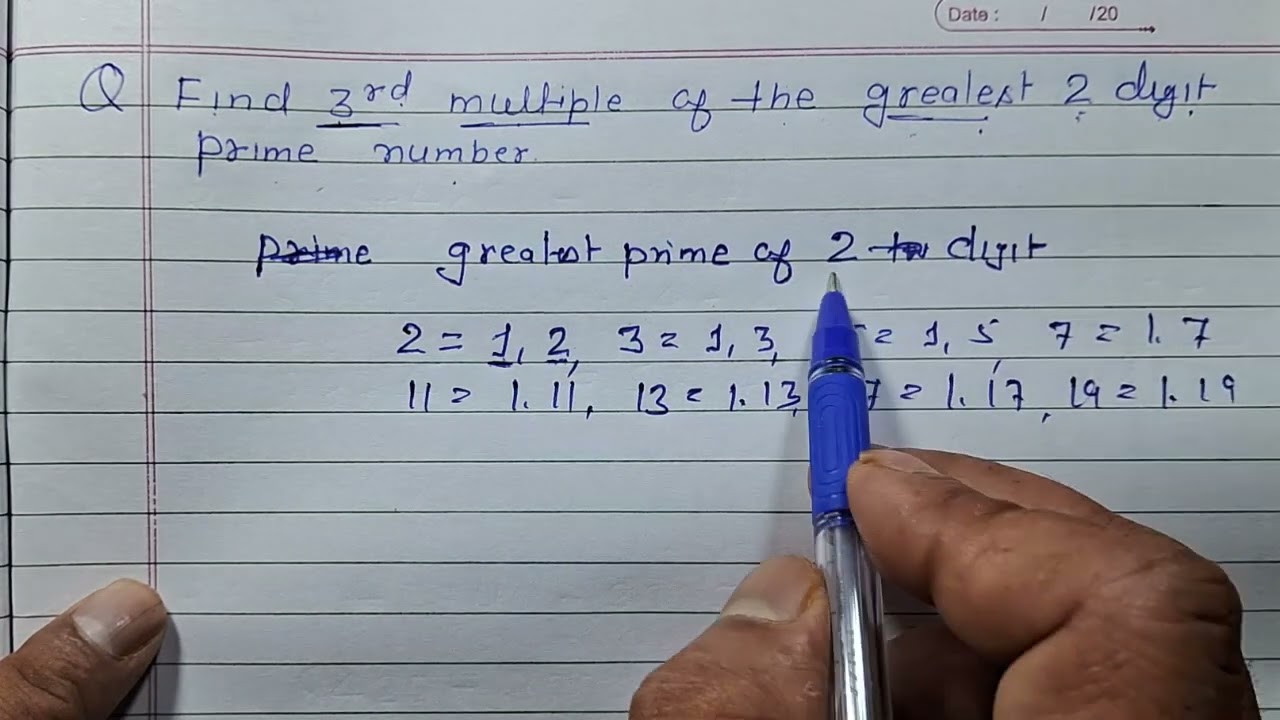 Date : / /20
Q Find 3rd multiple of the greatest 2 digit
prime number.
greatest prime of 2 digit
2 = 1, 2, 3 = 1, 3, = 1, 5 7 = 1. 7
11 = 1. 11, 13 = 1. 13, 7 = 1. 17, 19 = 1. 19